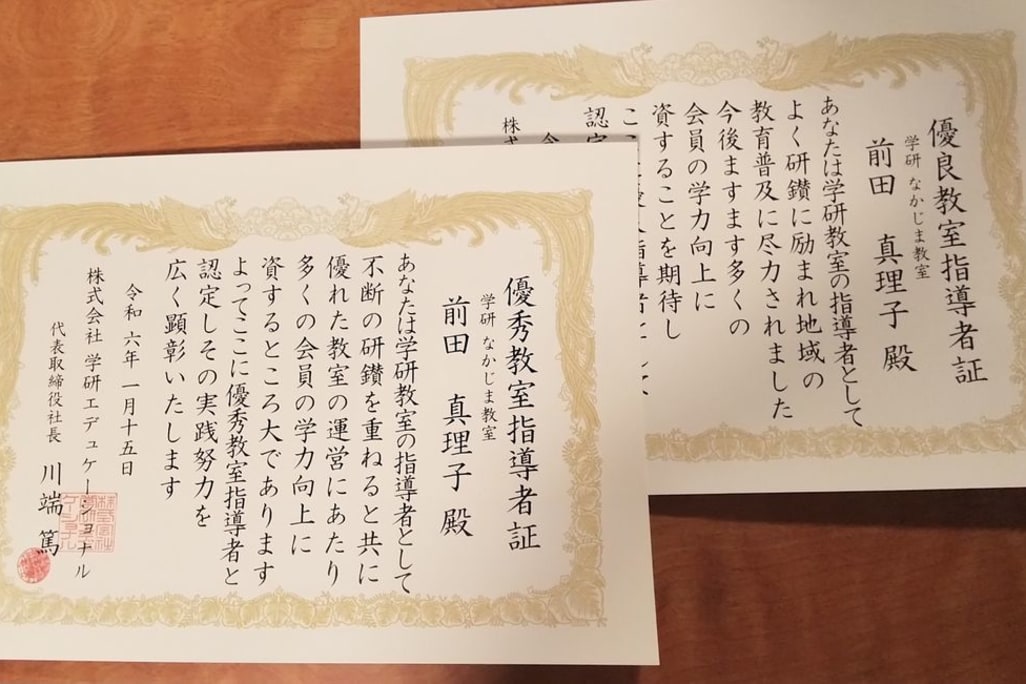 優秀教室指導者証
学研 なかじま教室
前田 真理子 殿
あなたは学研教室の指導者として
不断の研鑽を重ねると共に
優れた教室の運営にあたり
多くの会員の学力向上に
資するところ大であります
よってここに優秀教室指導者と
認定しその実践努力を
広く顕彰いたします
令和 六年 一月 十五日
株式会社 学研エデュケーショナル
代表取締役社長 川端 篤
優良教室指導者証
学研 なかじま教室
前田 真理子 殿
あなたは学研教室の指導者として
よく研鑽に励まれ地域の
教育普及に尽力されました
今後ますます多くの
会員の学力向上に
資することを期待し
認定